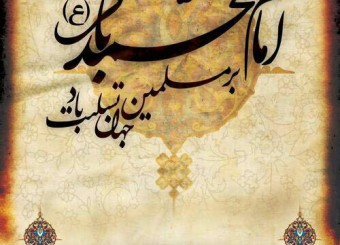 امام محمد باقر (ع)
بر مسلمین
جهان تسلیت باد